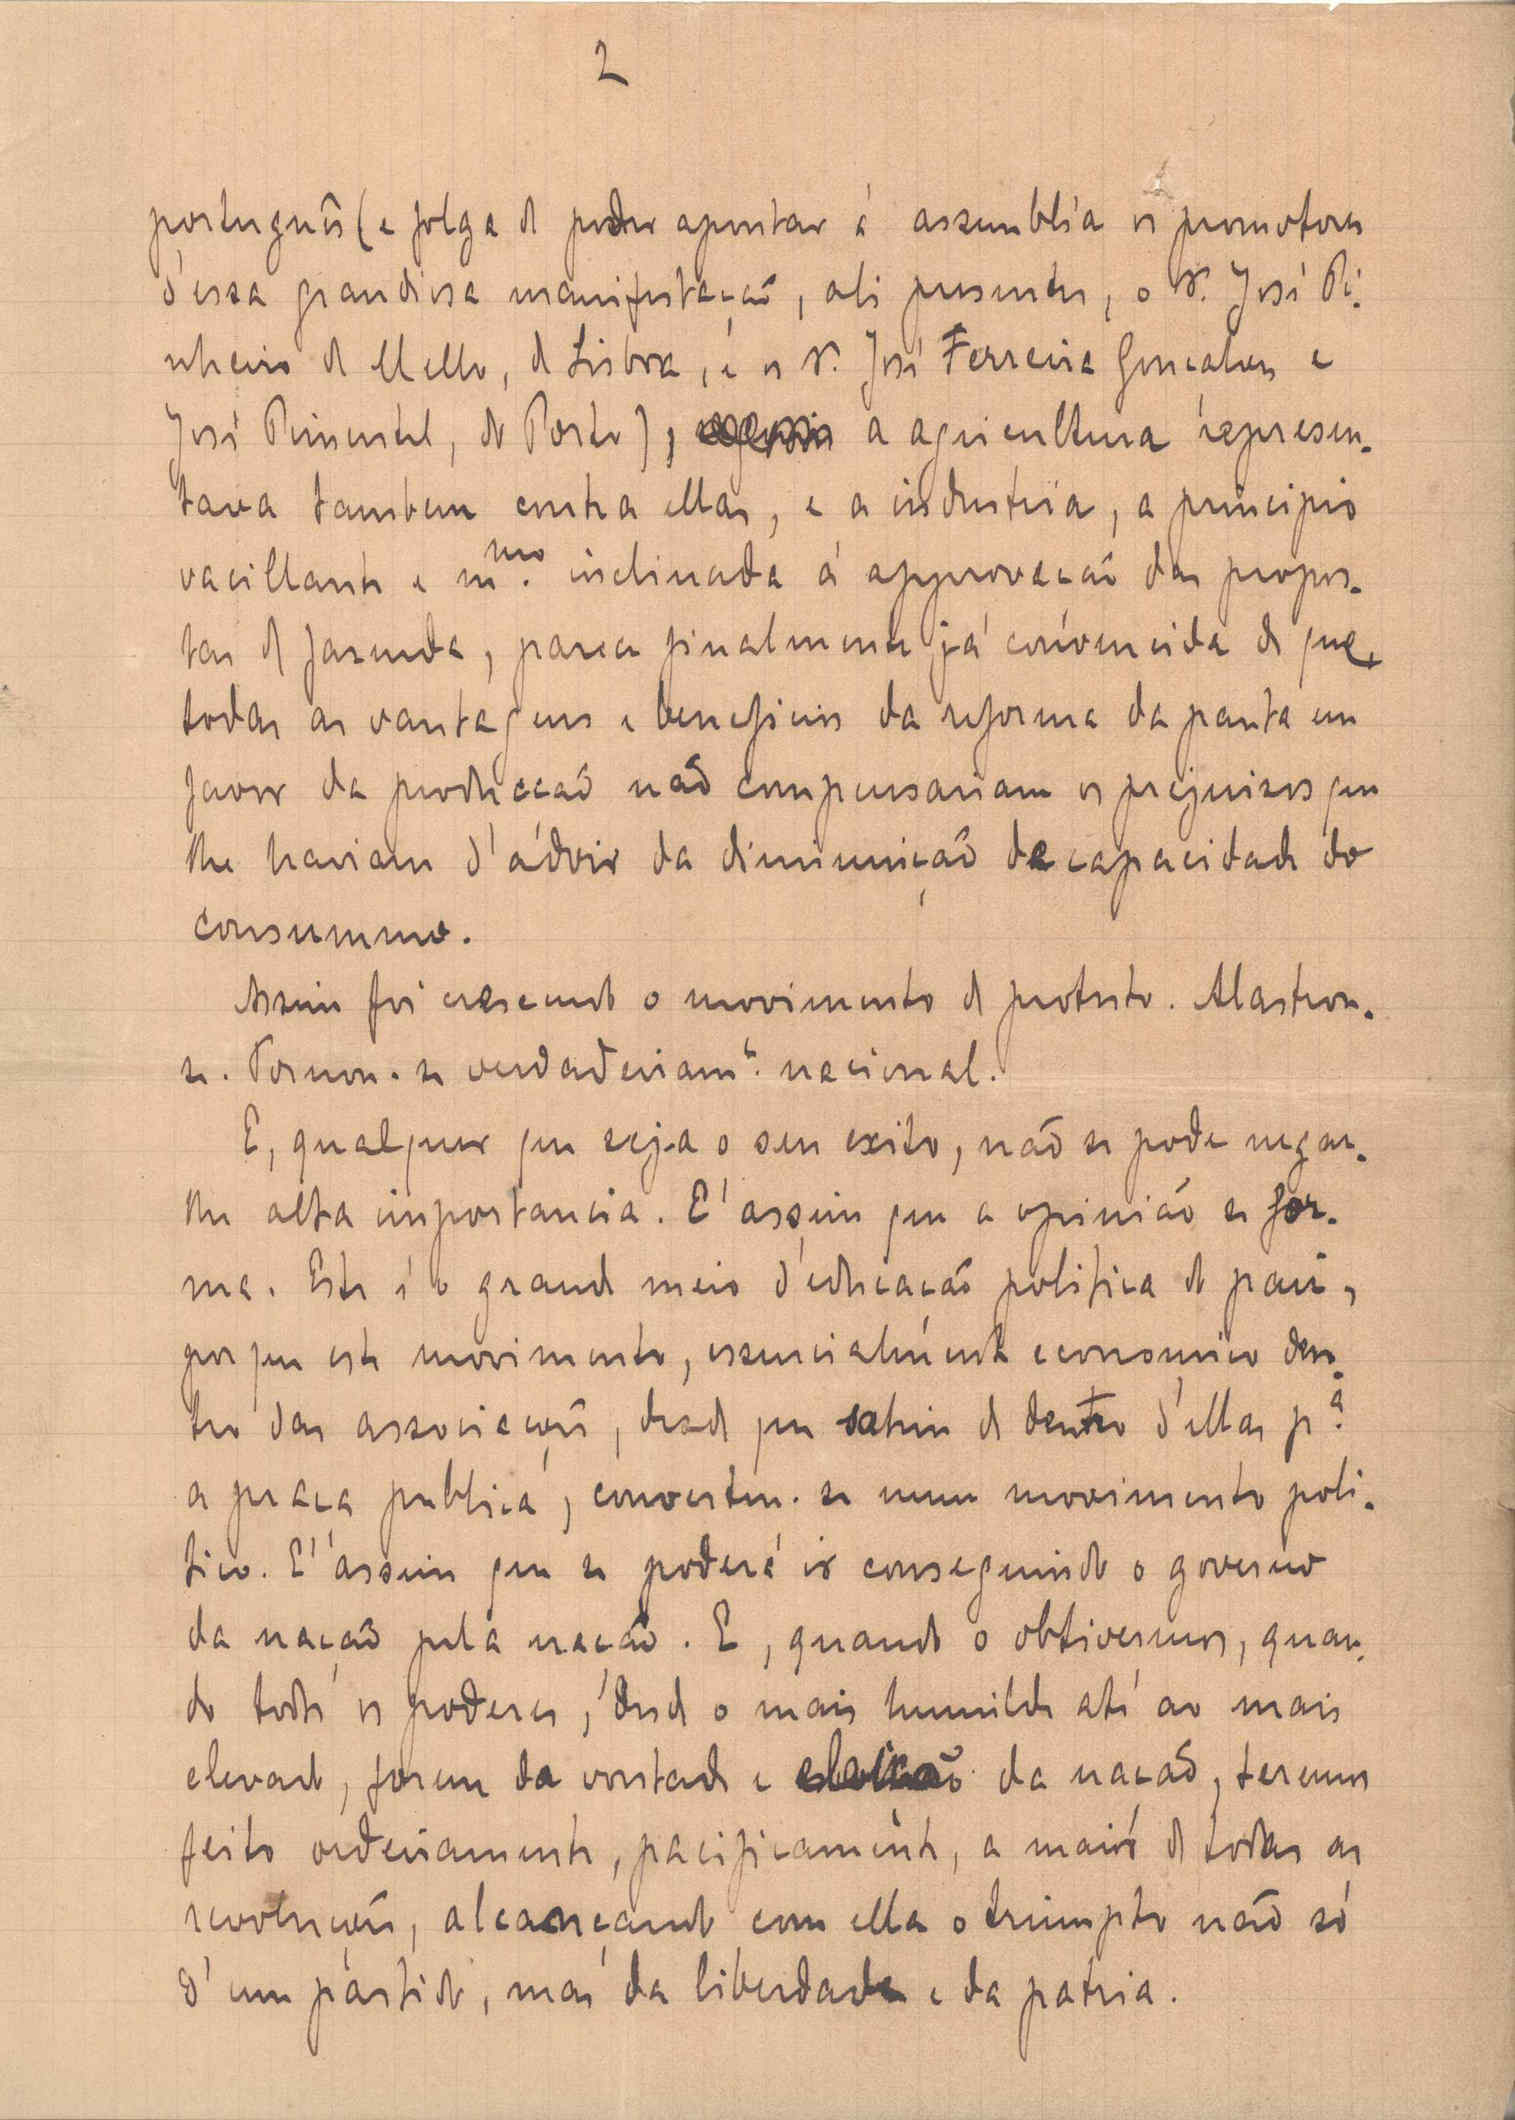 2
português (e folga de poder apontar á assembléa os promotores
d'essa grandiosa manifestação, ali presentes, o sr. José Pi-
nheiro de Mello, de Lisboa, e os srs. José Ferreira Gonçalves e
José Pimentel, do Porto), a agricultura represen-
tava tambem contra ellas, e a industria, a principio
vacillante e mmo. inclinada á approvação das propos-
tas de fazenda, parece finalmente já convencida de que
todas as vantagens e beneficios da reforma da pauta em
favor da protecção não compensariam os prejuizos que
lhe haviam d'advir da diminuição da capacidade do
consummo.
Assim foi crescendo o movimento de protesto. Alastrou-
se. Tornou-se verdadeiramte. nacional.
E, qualquer que seja o seu exito, não se pode negar-
lhe alta importancia. E' assim que a opinião se for-
ma. Este é o grande meio d'educação politica do paiz,
porque este movimento, essencialmente economico den-
tro das associações, desde que sahiu de dentro d'ellas pa.
a praça publica, converteu-se num movimento poli-
tico. E' assim que se poderá ir conseguindo o governo
da nação pela nação. E, quando o obtivermos, quan-
do todos os poderes, desde o mais humilde até ao mais
elevado, forem da vontade e eleição da nação, teremos
feito ordeiramente, pacificamente, a maior de todas as
revoluções, alcançando com ella o triumpho não só
d'um partido, mas da liberdade e da patria.